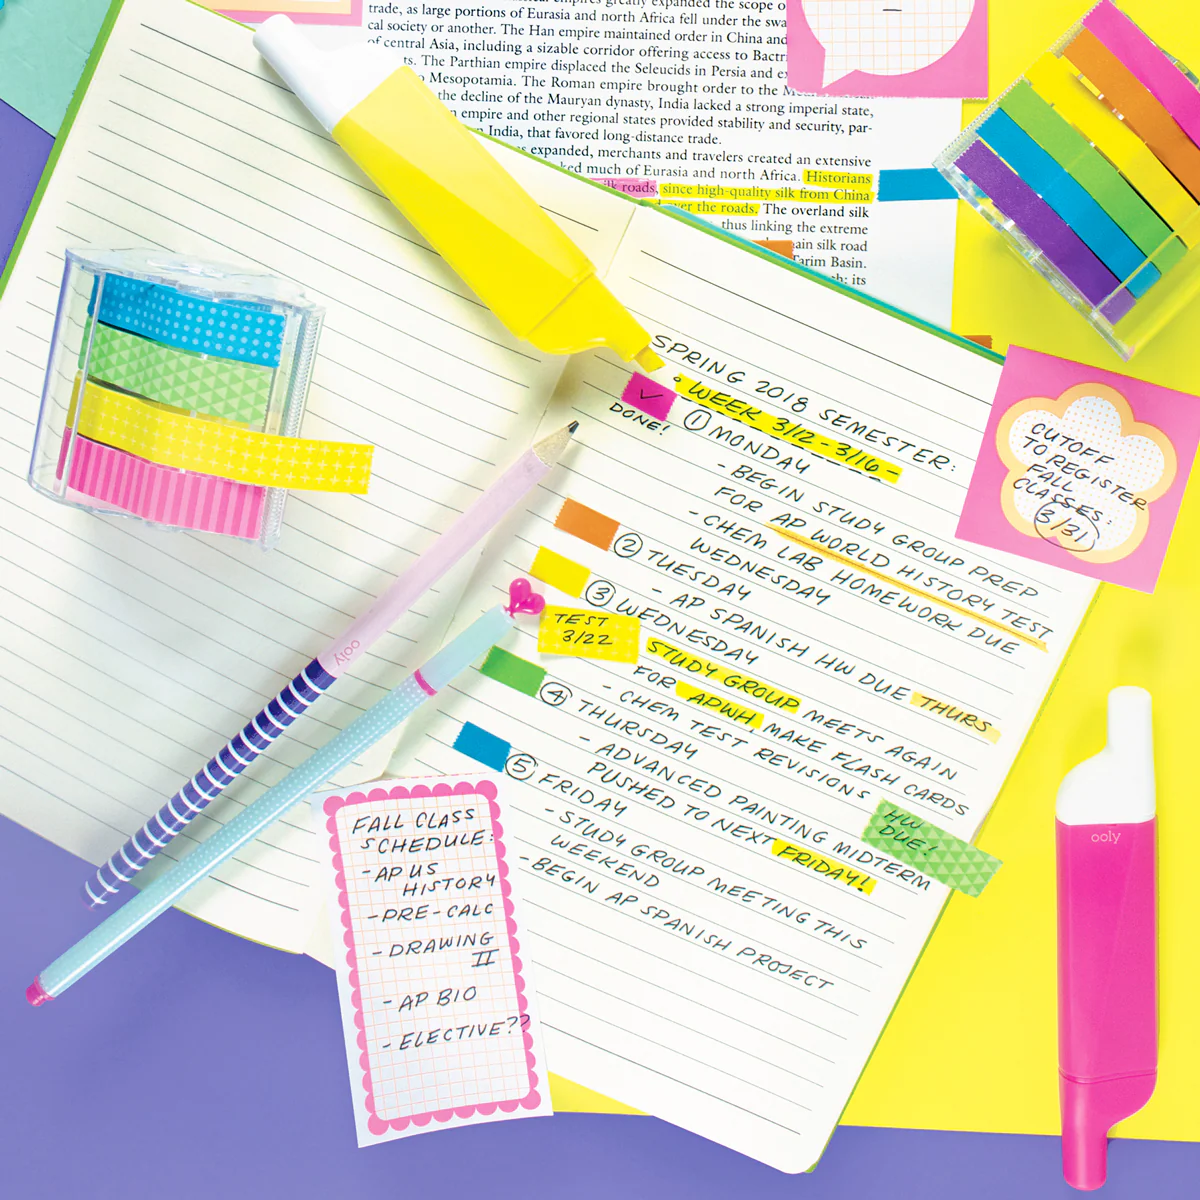 empires greatly expanded the scope o
trade, as large portions of Eurasia and north Africa fell under the swa
cal society or another. The Han empire maintained order in China and
of central Asia, including a sizable corridor offering access to Bactri
ts. The Parthian empire displaced the Seleucids in Persia and ex
o Mesopotamia. The Roman empire brought order to the
the decline of the Mauryan dynasty, India lacked a strong imperial state,
n empire and other regional states provided stability and security, par-
n India, that favored long-distance trade.
s expanded, merchants and travelers created an extensive
ked much of Eurasia and north Africa. Historians
silk roads, since high-quality silk from China
over the roads. The overland silk
thus linking the extreme
main silk road
Tarim Basin.
its
SPRING 2018 SEMESTER:
• WEEK 3/12 - 3/16 -
✓
DONE!
① MONDAY
- BEGIN STUDY GROUP PREP
FOR AP WORLD HISTORY TEST
- CHEM LAB HOMEWORK DUE
WEDNESDAY
② TUESDAY
- AP SPANISH HW DUE THURS
③ WEDNESDAY
TEST
3/22
STUDY GROUP MEETS AGAIN
FOR APWH, MAKE FLASH CARDS
- CHEM TEST REVISIONS
④ THURSDAY
- ADVANCED PAINTING MIDTERM
PUSHED TO NEXT FRIDAY!
HW
DUE!
⑤ FRIDAY
- STUDY GROUP MEETING THIS
WEEKEND
- BEGIN AP SPANISH PROJECT
CUTOFF
TO REGISTER
FALL
CLASSES:
3/31
FALL CLASS
SCHEDULE:
- AP US
HISTORY
- PRE-CALC
- DRAWING
II
- AP BIO
- ELECTIVE??
ooly
ooly